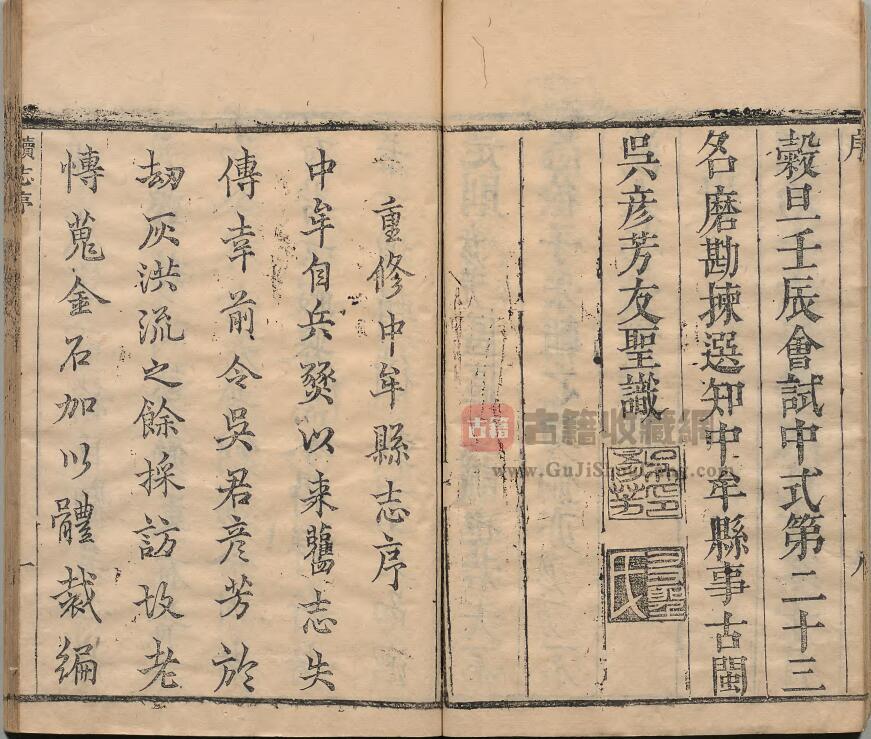 序
穀旦壬辰會試中式第二十三
名磨勘揀選知中牟縣事古閩
吳彥芳友聖識
八
重修中牟縣志序
中牟自兵燹以来舊志失
傳幸前令吳君彥芳於
劫灰洪流之餘採訪故老
慱蒐金石加以體裁編
續志序
一
古籍
古籍收藏網
www.GuJiShoucang.com